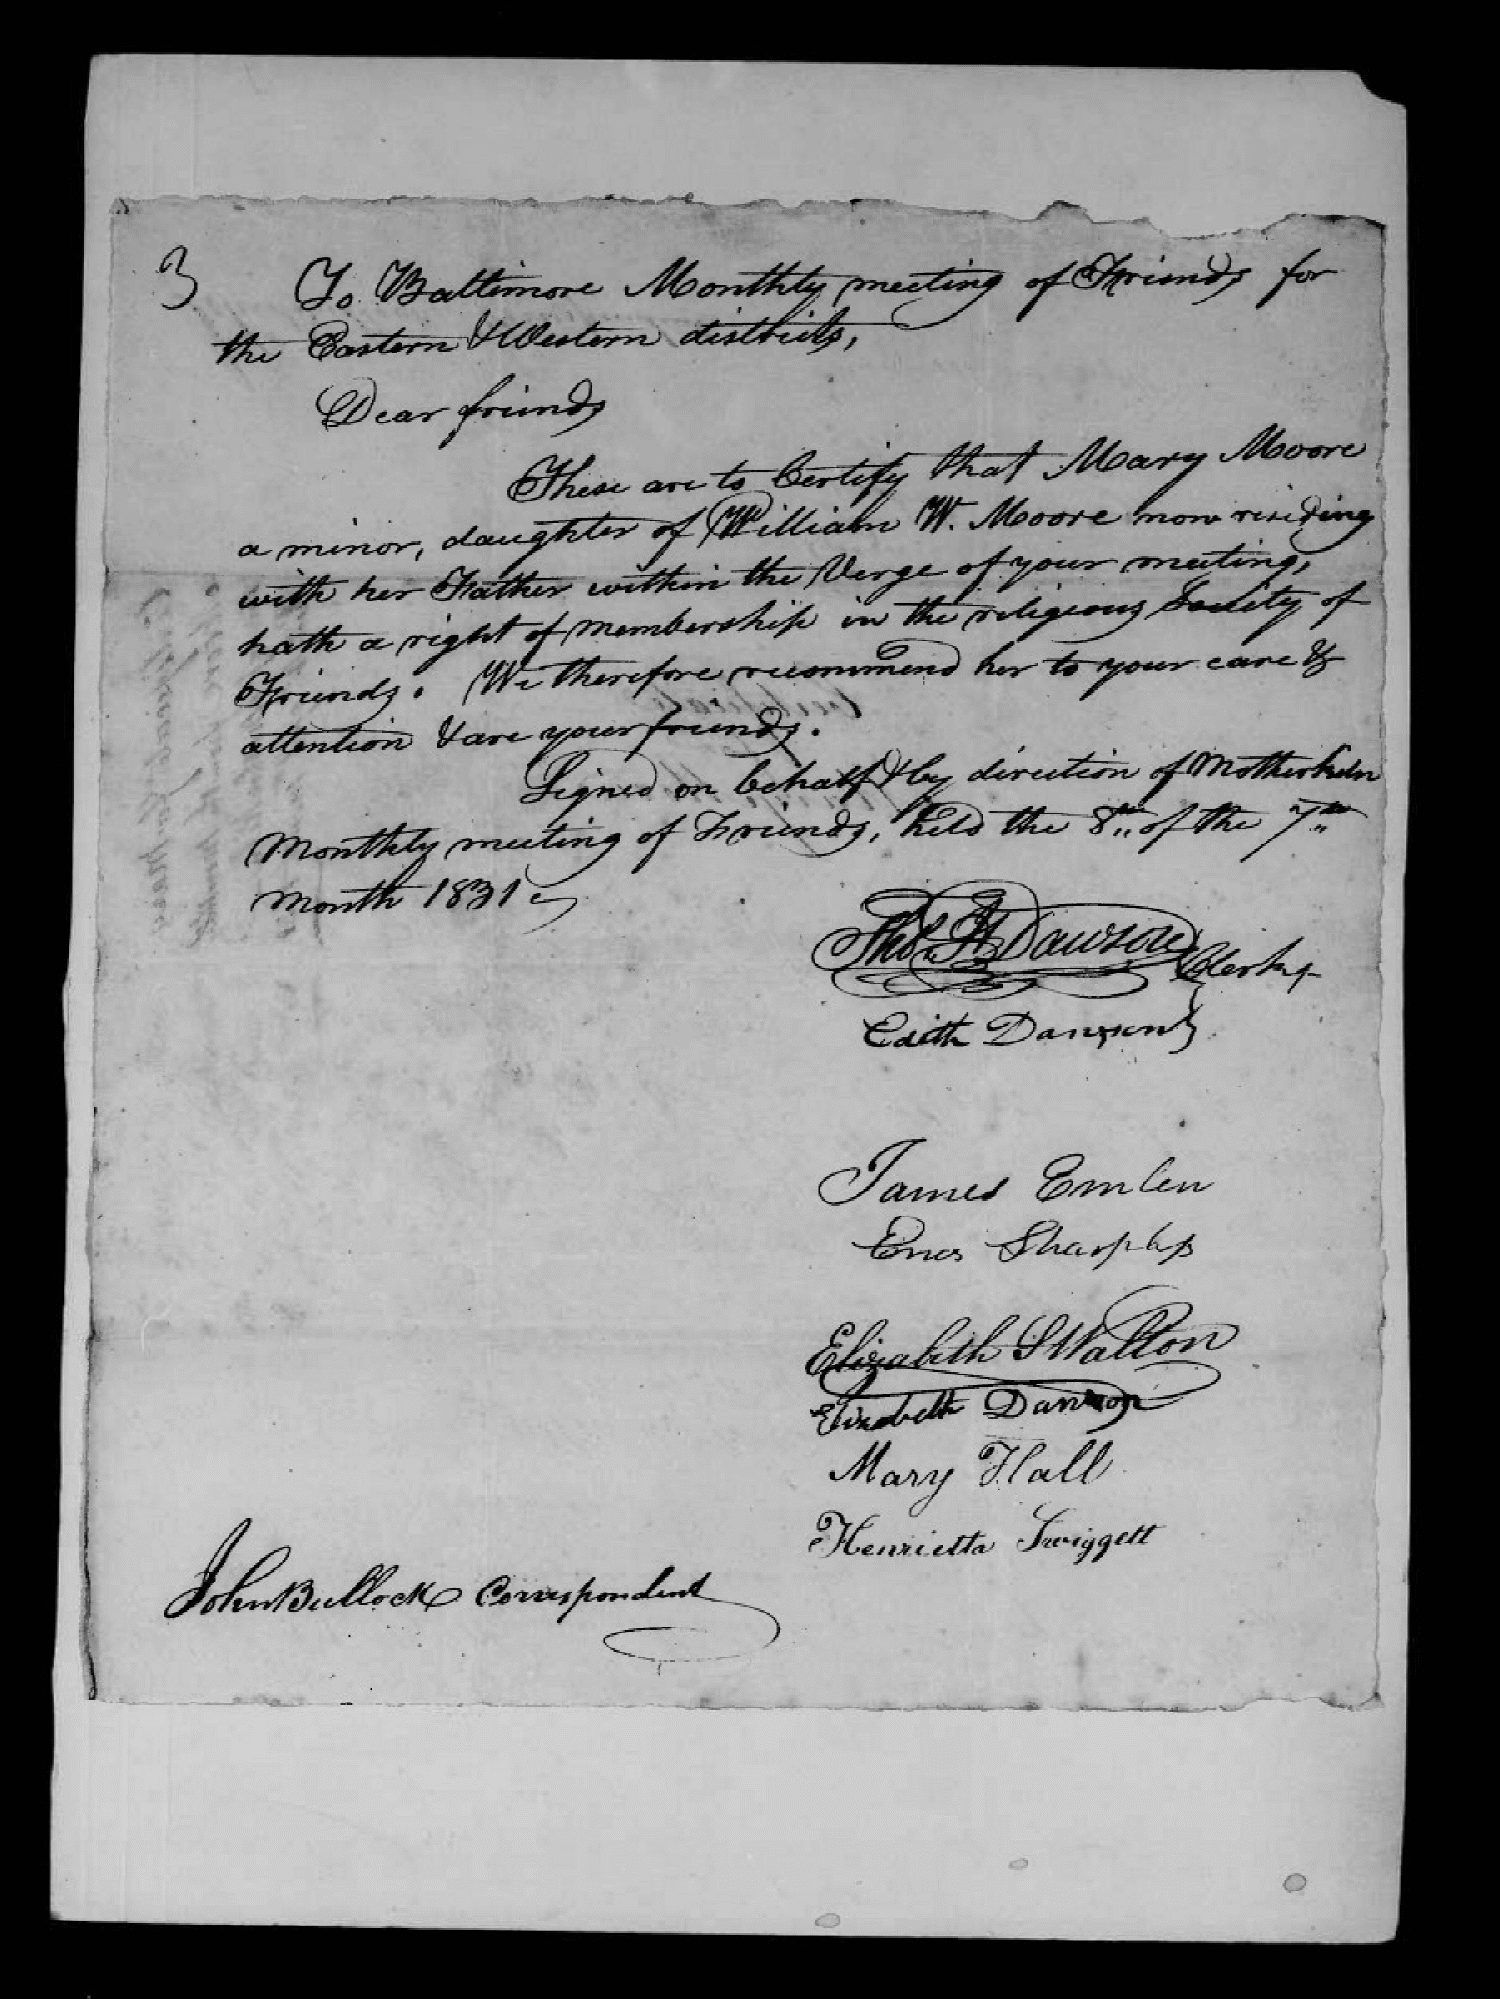 3
To Baltimore Monthly meeting of Friends for
the Eastern & Western districts,
Dear friends
These are to Certify that Mary Moore
a minor, daughter of William W. Moore now residing
with her Father within the Verge of your meeting,
hath a right of membership in the religious Society of
Friends. We therefore recommend her to your care &
attention & are your friends.
Signed on behalf & by direction of Motherkiln
Monthly meeting of Friends, held the 8th of the 7th
month 1831
Thos. H Dawson
Clerks
Edith Dawson
James Emlen
Enos Sharpless
Elizabeth S Walton
Elizabeth Dawson
Mary Hall
Henrietta Swiggett
John Bullock Correspondent